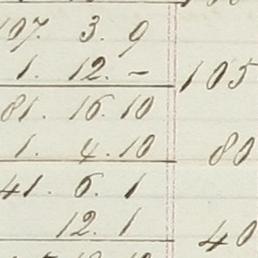 107. 3. 9
1. 12. – 105
81. 16. 10
1. 4. 10 80
41. 6. 1
12. 1 40